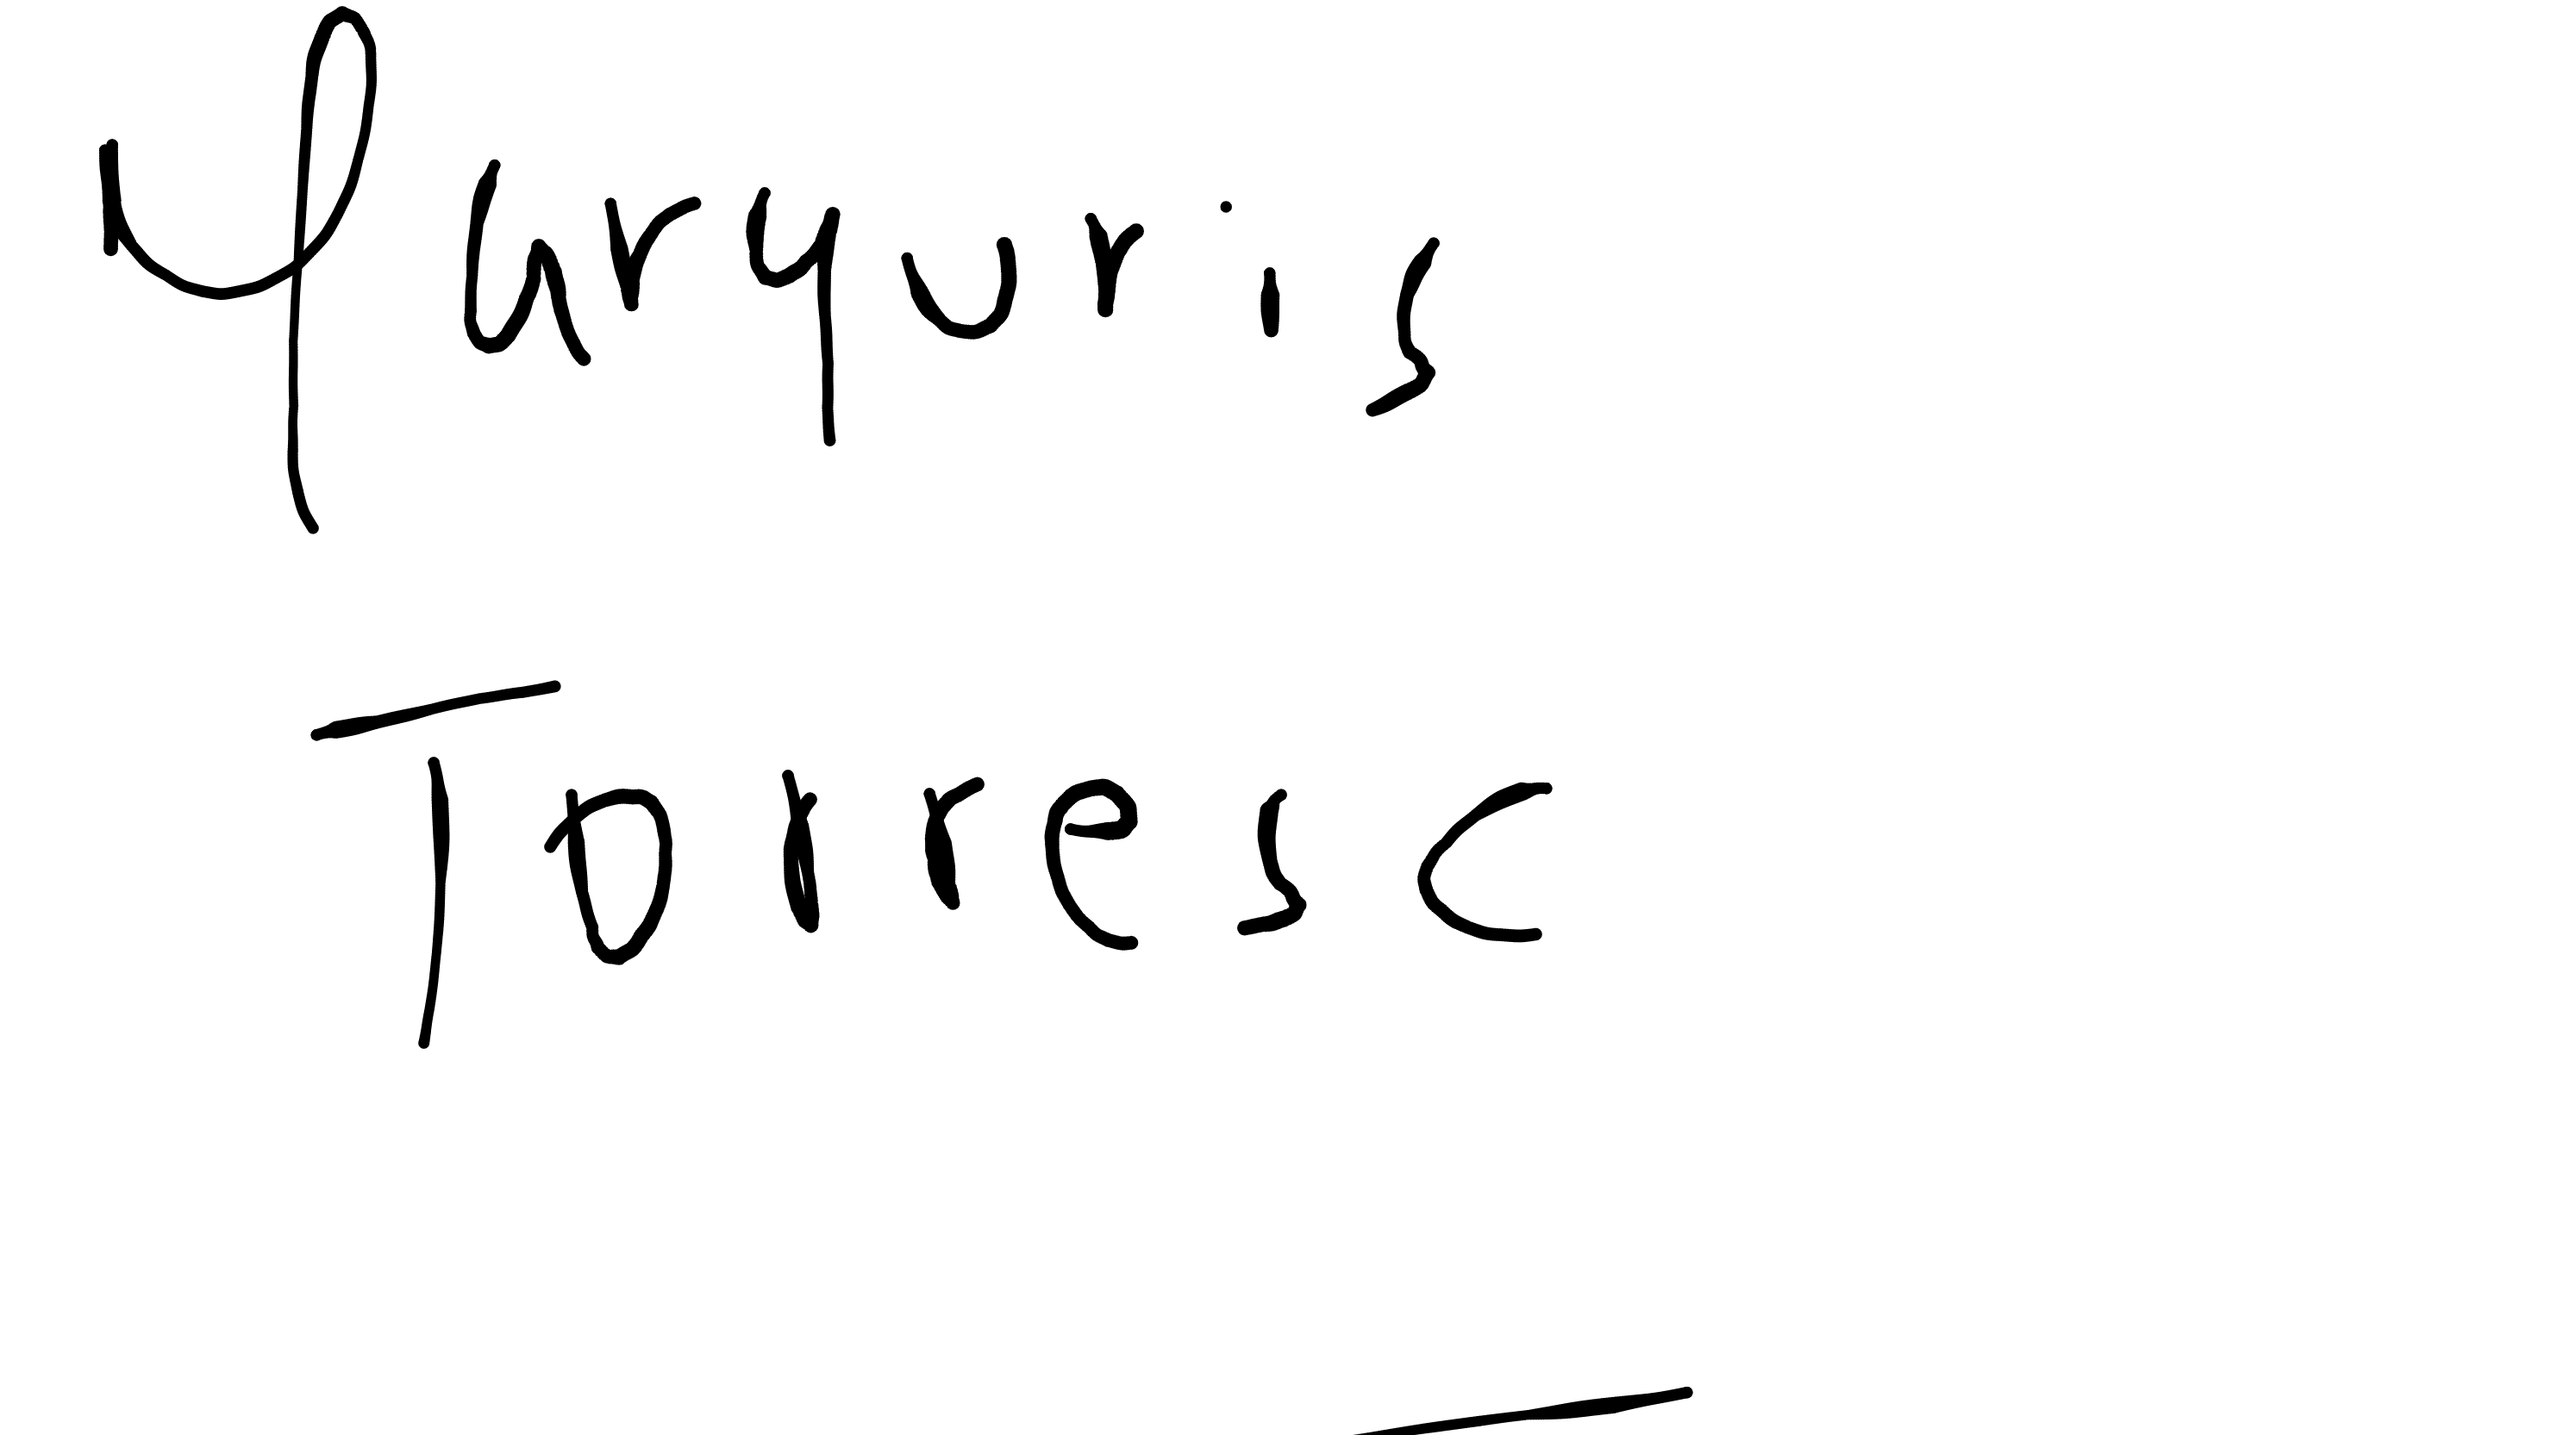 Yaryuris
Torresc